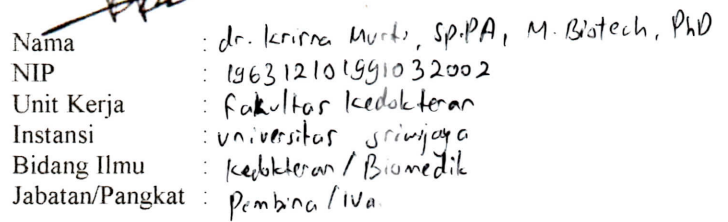 Nama : dr. Krisna Murti, Sp.PA, M. Biotech, PhD
NIP : 196312101991032002
Unit Kerja : Fakultas Kedokteran
Instansi : Universitas Sriwijaya
Bidang Ilmu : Kedokteran / Biomedik
Jabatan/Pangkat : Pembina / IVa